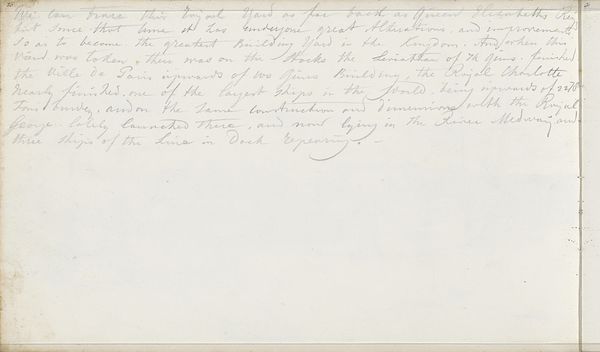 We can trace this Royal Yard as far back as Queen Elizabeths Rei
but since that time it has undergone great Alterations, and improvements
So as to become the greatest Building Yard in the Kingdom, And when this
View was taken, there was on the Stocks the Leviathan of 74 Guns. finished
the Ville de Paris upwards of two years Building, the Royal Charlotte
nearly finished. one of the largest Ships in the World. being upwards of
Tons burden, and on the same construction and dimensions with the Royal
George lately launched there, and now lying in the River Medway, and
three Ships of the Line in Dock repairing. -